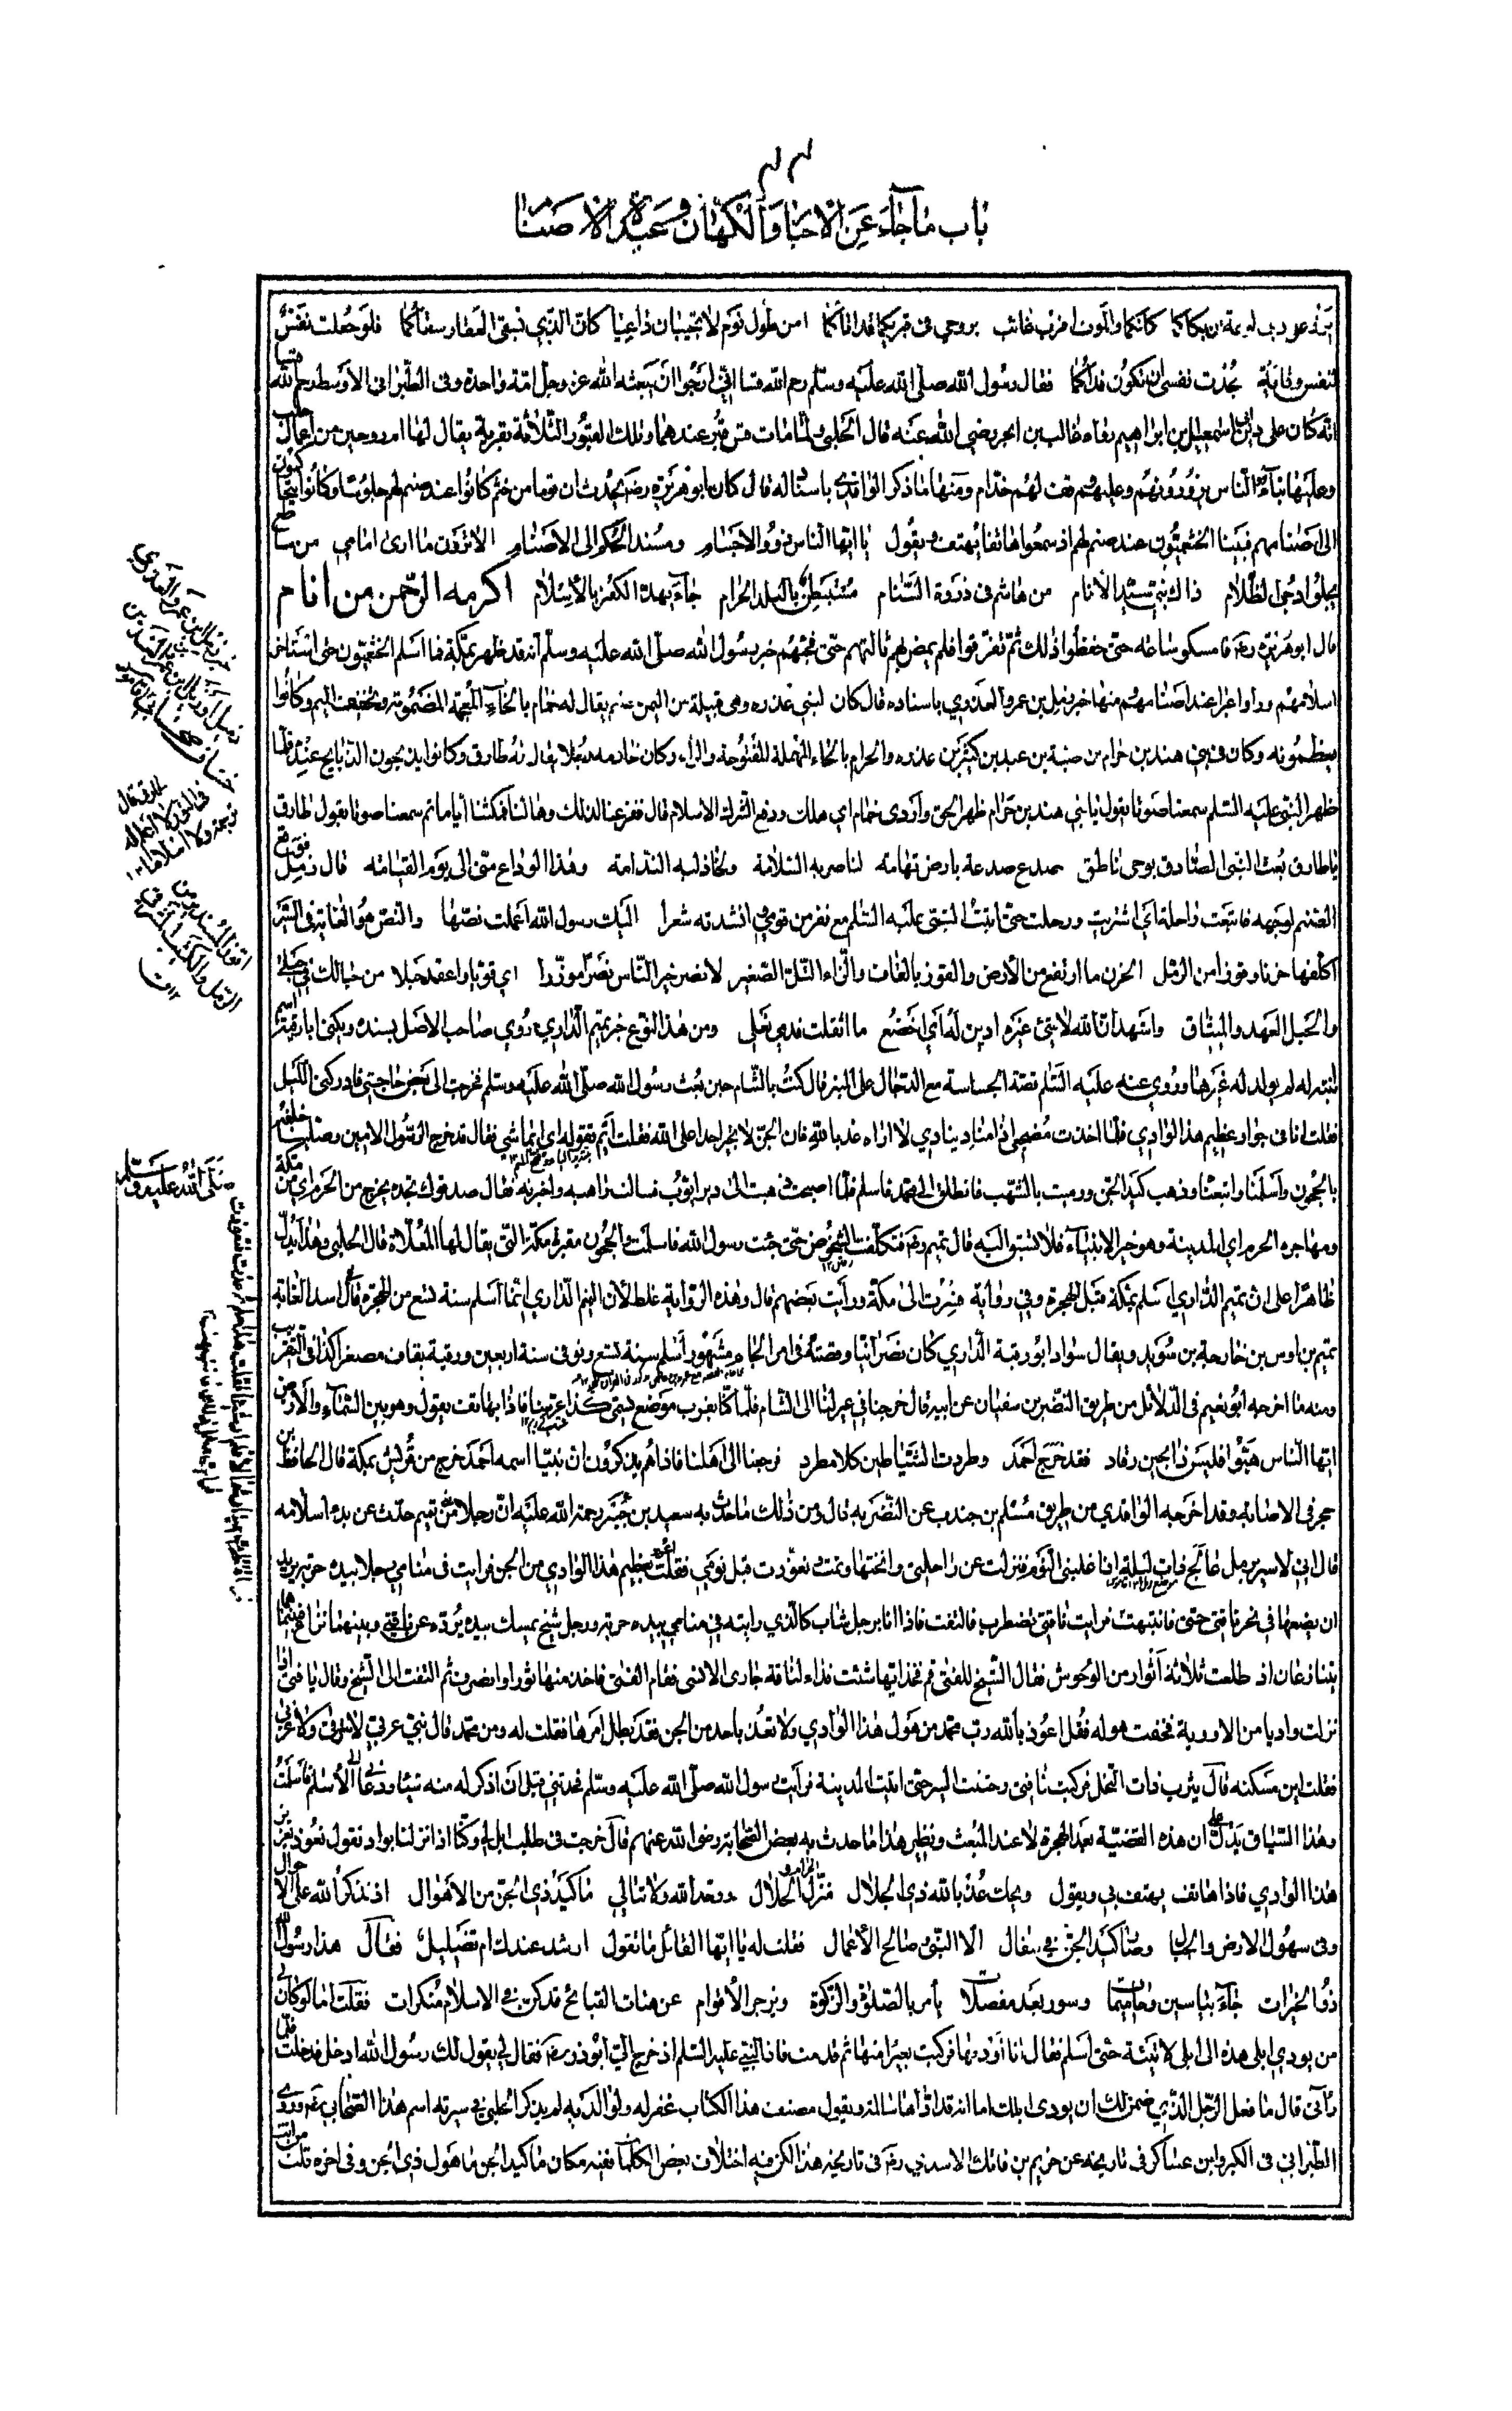 باب ما جاء عن الاحبار والكهان وعبدة الاصنام
كانكما والموت اقرب غائب بروحي في قبريكما قد اتاكما امن طول نوم لا تجيبان داعيا كان الذي يسقي العقار سقاكما فلو جعلت نفس
لنفس وقاية لجدت بنفسي ان تكون فداكما فقال رسول الله صلى الله عليه وسلم رحم الله قسا اني ارجوا ان يبعثه الله عز وجل امة واحدة وفي الطبراني الاوسط رحم الله قسا
انه كان على دين اسمعيل بن ابراهيم رواه غالب بن ابجر رضي الله عنه قال الحلبي ولما مات قس قبر عندهما وتلك القبور الثلاثة بقرية يقال لها روحين من اعمال حلب
وعليها بناء الناس يزورونهم وعليهم وقف لهم خدام ومنها ما ذكر الواقدي باسناد له قال كان ابو هريرة رضه يحدث ان قوما من خثعم كانوا عند صنم لهم جلوسا وكانوا يتحاكمون
الى اصنامهم فبينا الخثعميون عند صنم لهم اذ سمعوا هاتفا يهتف ويقول يا ايها الناس ذوو الاجسام ومسند الحكم الى الاصنام الا ترون ما ارى امامي من ساطع
يجلو ادجى الظلام ذاك نبي سيد الانام من هاشم في ذروة السنام مستبطن بالبلد الحرام جاء يهد الكفر بالاسلام اكرمه الرحمن من انام
قال ابو هريرة رضه فامسكوا ساعة حتى حفظوا ذلك ثم تفرقوا فلم يمض بهم ثالثهم حتى فجئهم خبر رسول الله صلى الله عليه وسلم انه قد ظهر بمكة فما اسلم الخثعميون حتى استاخر
اسلامهم وراوا عبرا عند اصنامهم منها خبر زميل بن عمرو العذري باسناده قال كان لبني عذره وهي قبيلة من اليمن صنم يقال له خمام بالخاء المعجمة المضمومة وتخفيف الميم وكانوا
يعظمونه وكان في بني هند بن حرام بن ضبة بن عبد بن كثير بن عذره والحرام بالحاء المهملة المفتوحة والراء وكان خادمه رجلا يقال له طارق وكانوا يذبحون الذبايح عنده فلما
ظهر النبي عليه السلم سمعنا صوتا يقول يا بني هند بن حرام ظهر الحق واودى خمام اي هلك ودفع الشرك الاسلام قال ففزعنا لذلك وهالنا فمكثنا اياما ثم سمعنا صوتا يقول يا طارق
يا طارق بعث النبي الصادق بوحي ناطق صدع صدعة بارض تهامه لناصريه السلامة ولخاذليه الندامه وهذا الوداع مني الى يوم القيامه قال زميل فوقع
الصنم لوجهه فابتعت راحلة اي اشتريت ورحلت حتى اتيت النبي عليه السلم مع نفر من قومي وانشدته شعرا اليك رسول الله اعملت نصها والنص هو الغاية في السير
اكلفها حزنا وقوزا من الرمل الحزن ما ارتفع من الارض والقوز بالقاف والزاء التل الصغير لانصر خير الناس نصرا موزرا اي قويا واعقد حبلا من حبالك في حبلي
والحبل العهد والميثاق واشهد ان الله لا شيء غيره ادين له اي اخضع ما اثقلت قدمي نعلي ومن هذا النوع خبر تميم الداري روي صاحب الاصل بسنده ويكنى ابا رقية اسم
لبنته لم يولد له غيرها وروي عنه عليه السلم قصة الجساسة مع الدجال على المنبر قال كنت بالشام حين بعث رسول الله صلى الله عليه وسلم فخرجت الى بعض حاجتي فادركني الليل
فقلت انا في جوار عظيم هذا الوادي فلما اخذت مضجعي اذا مناد ينادي لا اراه عذ بالله فان الجن لا تجير احدا على الله فقلت ايم تقول اي اي شيء فقال قد خرج الرسول الامين وصلينا خلفه
بالحجون واسلمنا واتبعنا وذهب كيد الجن ورميت بالشهب فانطلق الى محمد فاسلم فلما اصبحت ذهبت الى دير ايوب فسالت راهبه واخبرته فقال صدقوك تجده يخرج من الحرم اي من مكة
ومهاجره الحرم اي المدينة وهو خير الانبياء فلا تسبق اليه قال تميم رضه فتكلفت الشخوص حتى جئت رسول الله فاسلمت والحجون مقبرة مكة التي يقال لها المعلاة قال الحلبي وهذا يدل
ظاهرا على ان تميم الداري اسلم بمكة قبل الهجرة وفي رواية فسرت الى مكة ورايت بعضهم قال وهذه الرواية غلط لان تميم الداري انما اسلم سنة تسع من الهجرة قال في اسد الغابة
تميم بن اوس بن خارجة بن سويد ويقال سواد ابو رقية الداري كان نصرانيا وقصته في امر الجام مشهور اسلم سنة تسع وتوفي سنة اربعين ورقية بقاف مصغر كذا في التقريب
ومنه ما اخرجه ابو نعيم في الدلائل من طريق النضر بن سفيان عن ابيه قال خرجنا في عير لنا الى الشام فلما كنا بقرب موضع سمي كذا عرسنا فاذا بهاتف يقول وهو بين السماء والارض
ايها الناس هبوا فليس ذا بحين رقاد فقد خرج احمد وطردت الشياطين كلا مطرد فرجعنا الى اهلنا فاذا هم يذكرون ان نبيا اسمه احمد خرج من قريش بمكة قال الحافظ بن
حجر في الاصابة وقد اخرجه الواقدي من طريق مسلم بن جندب عن النضر به قال ومن ذلك ما حدث به سعيد بن جبير رحمة الله عليه ان رجلا من تميم حدث عن بدء اسلامه
قال اني لاسير برمل عالج ذات ليلة اذ غلبني النوم فنزلت عن راحلتي وانختها ونمت وتعوذت قبل نومي فقلت اعوذ بعظيم هذا الوادي من الجن فرايت في منامي رجلا بيده حربة يريد
ان يضعها في نحر ناقتي فانتبهت فرايت ناقتي تضطرب فالتفت فاذا انا برجل شاب كالذي رايته في منامي بيده حربة ورجل شيخ يمسك بيده يرده عن ناقتي وبينهما نزاع فبينما هما
يتنازعان اذ طلعت ثلاثة اثوار من الوحوش فقال الشيخ للفتى قم فخذ ايها شئت فداء لناقة جاري الانسي فقام الفتى فاخذ منها ثورا وانصرف ثم التفت الى الشيخ وقال يا فتى اذا
نزلت واديا من الاودية فخفت هوله فقل اعوذ بالله رب محمد من هول هذا الوادي ولا تعذ باحد من الجن فقد بطل امرها فقلت له ومن محمد قال نبي عربي لا شرقي ولا غربي
فقلت اين مسكنه قال يثرب ذات النخل فركبت ناقتي وحثثت السير حتى اتيت المدينة فرايت رسول الله صلى الله عليه وسلم فحدثني قبل ان اذكر له منه شيئا ودعاني الى الاسلام فاسلمت
وهذا السياق يدل على ان هذه القضية بعد الهجرة لا عند المبعث ونظير هذا ما حدث به بعض الصحابة رضوان الله عنهم قال خرجت في طلب ابل لي وكنا اذا نزلنا بواد نقول نعوذ بعزيز
هذا الوادي فاذا هاتف يهتف بي ويقول ويحك عذ بالله ذي الجلال منزل الحرام والحلال ووحد الله ولا تبالي ما كيد ذي الجن من الاهوال اذ تذكر الله على الاحوال
وفي سهول الارض والجبال وصار كيد الجن في سفال الا التقى وصالح الاعمال فقلت له يا ايها القائل ما تقول ارشد عندك ام تضليل فقال هذا رسول الله
ذو الخيرات جاء بياسين وحاميمات وسور بعد مفصلات يأمر بالصلوة والزكوة ويزجر الاقوام عن هنات القبائح قد كن في الاسلام منكرات فقلت اما لو كان لي
من يودي ابلي هذه الى اهلي لاتيته حتى اسلم فقال انا اوديها فركبت بعيرا منها ثم قدمت فاذا النبي عليه السلم اذ خرج الي ابو ذر رضه فقال لي يقول لك رسول الله ادخل فدخلت فلما
رآني قال ما فعل الرجل الذي ضمن لك ان يودي ابلك اما انه قد اداها سالمة ويقول مصنف هذا الكتاب غفر له ولوالديه لم يذكر الحلبي في سيرته اسم هذا الصحابي رضه وروى
الطبراني في الكبير وابن عساكر في تاريخه عن خريم بن فاتك الاسدي رضه في تاريخه هذا لكن فيه اختلاف بعض الكلمات ففيه مكان ما كيد الجن ما هول ذي الجن وفي اخره قلت من انت
صلى الله عليه وسلم